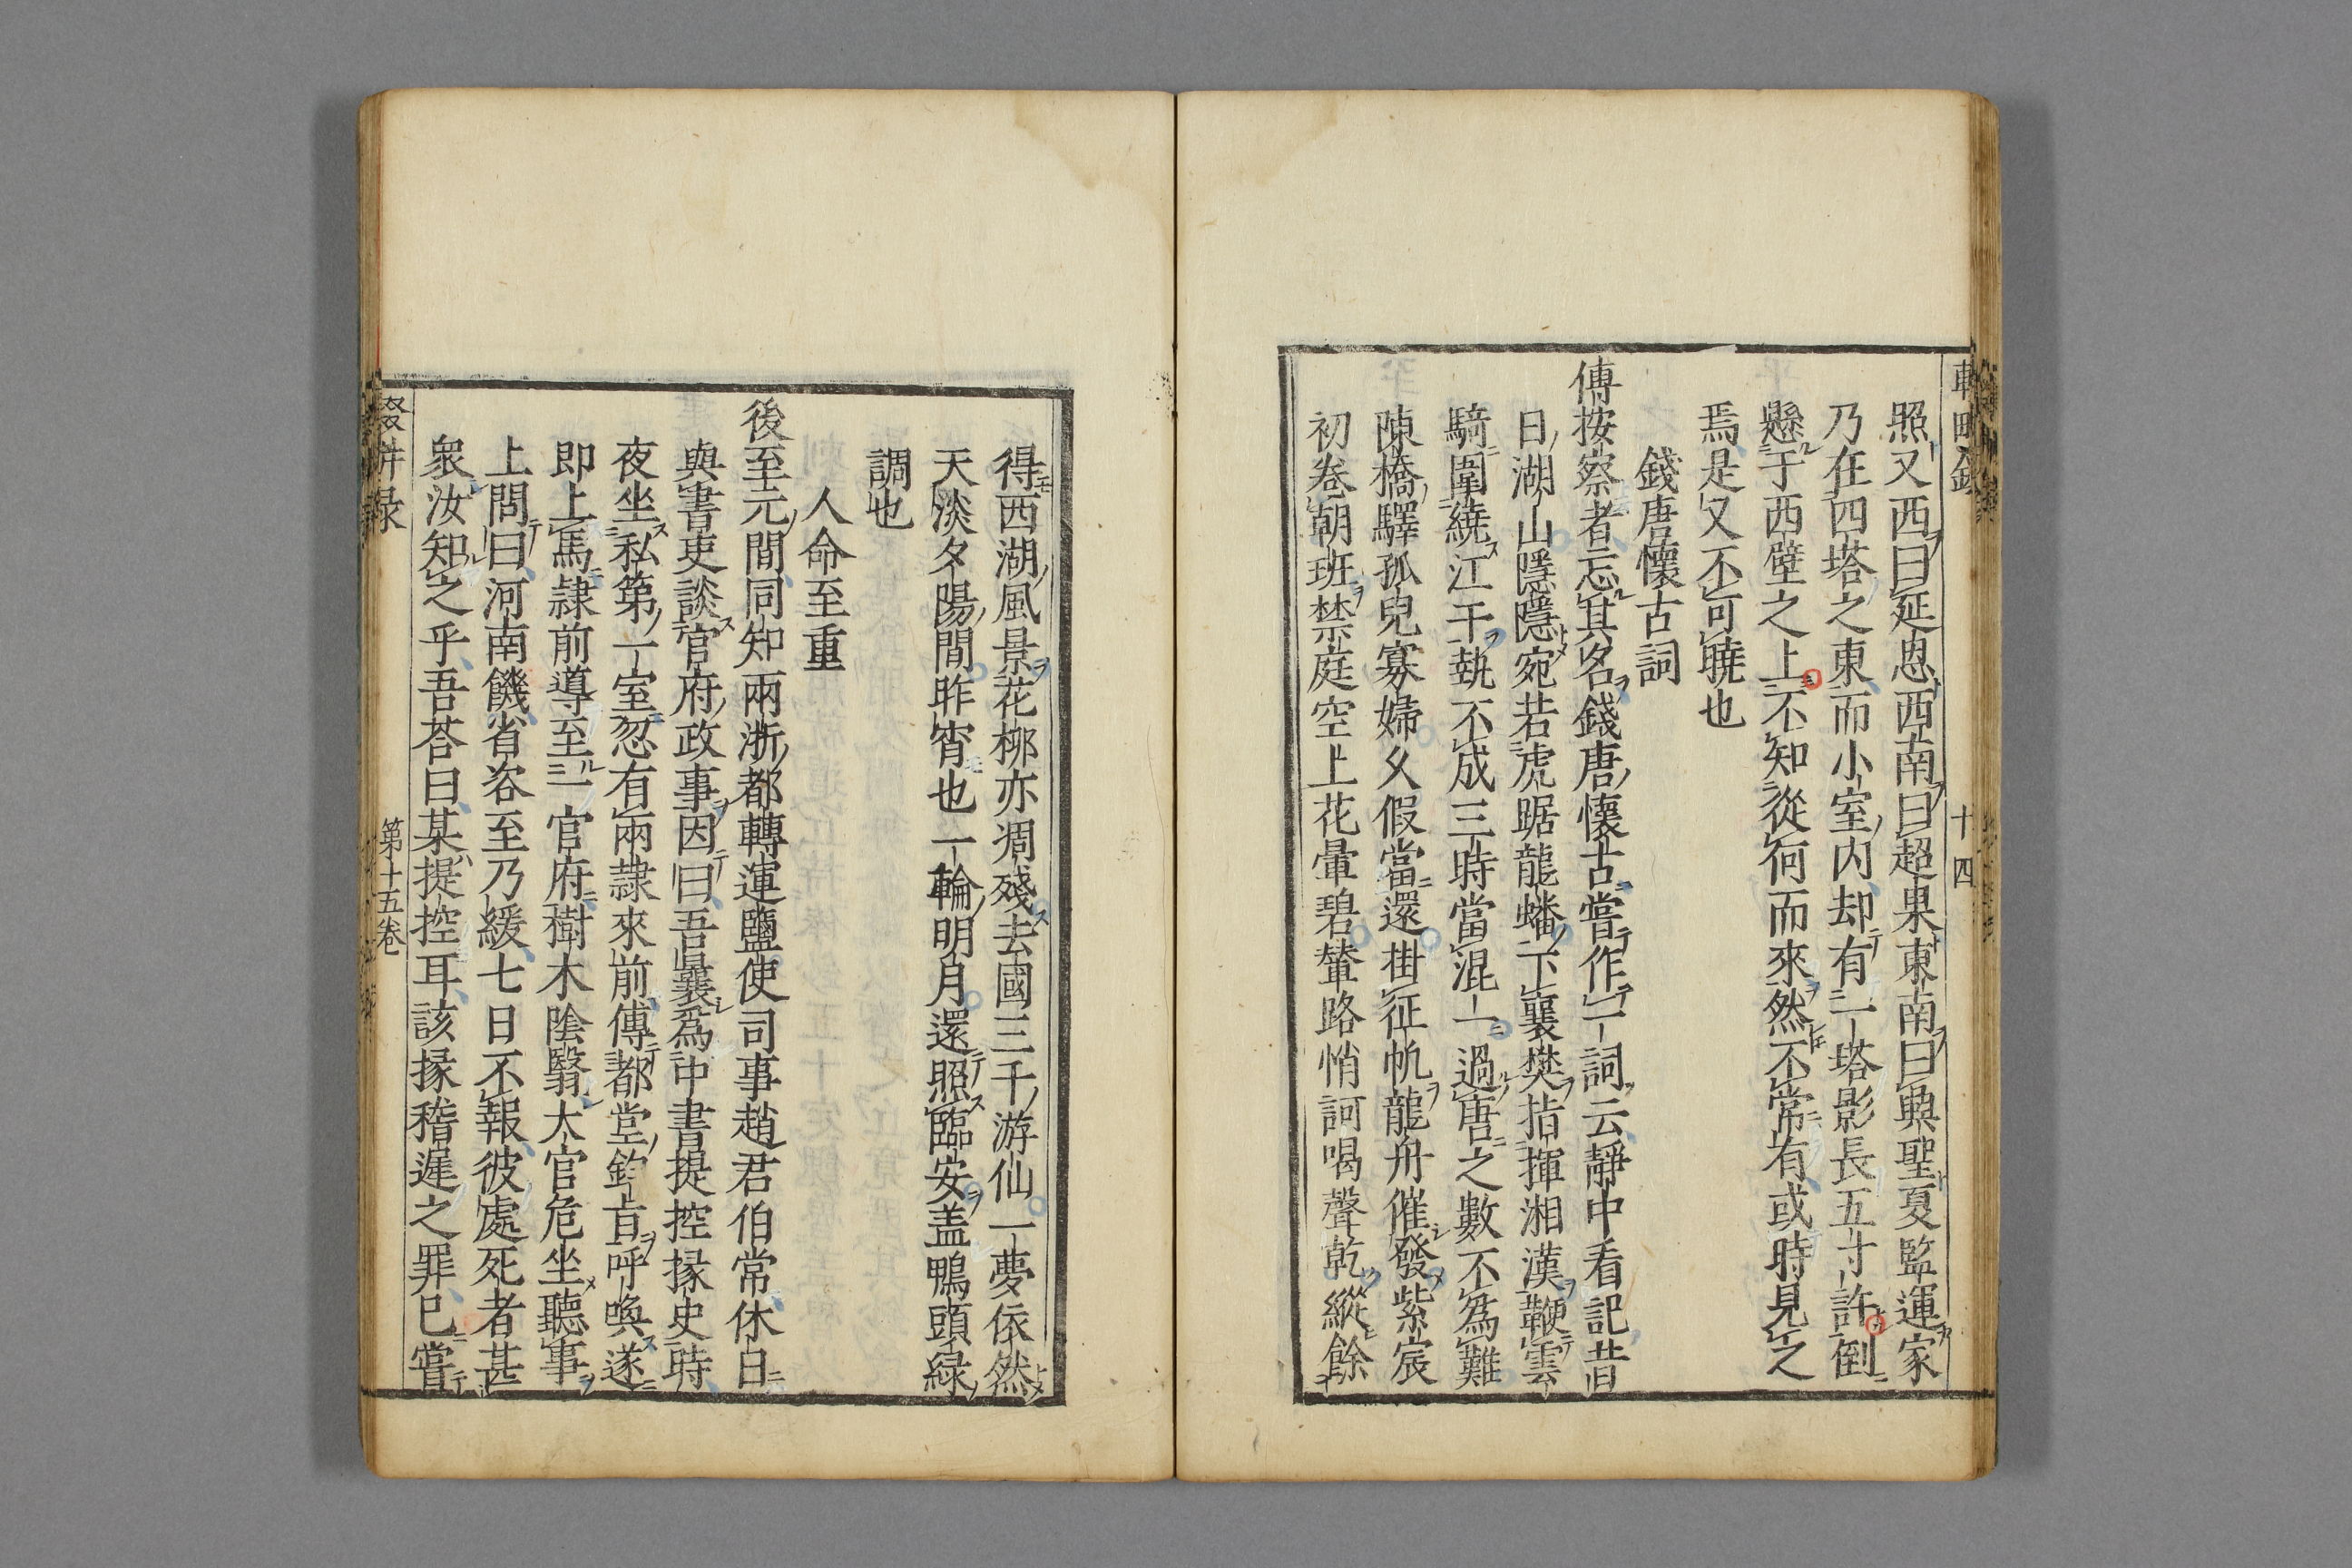 輟畊錄 十四
照又西曰延恩西南曰超果東南曰興聖夏監運家
乃在四塔之東而小室内却有一塔影長五寸許倒
懸于西壁之上不知從何而來然不常有或時見之
焉是又不可曉也
錢唐懷古詞
傅按察者忘其名錢唐懷古嘗作一詞云靜中看記昔
日湖山隱隱宛若虎踞龍蟠下襄樊指揮湘漢鞭雲
騎圍繞江干執不成三時當混一過唐之數不為難
陳橋驛孤兒寡婦久假當還掛征帆龍舟催發紫宸
初卷朝班禁庭空土花暈碧輦路悄訶喝聲乾縱餘
得西湖風景花柳亦凋殘去國三千游仙一夢依然
天淡夕陽間昨宵也一輪明月還照臨安盖鴨頭緑
調也
人命至重
後至元間同知兩浙都轉運鹽使司事趙君伯常休日
與書吏談官府政事因曰吾曩爲中書提控掾史時
夜坐私第一室忽有兩隷來前傳都堂鈞旨呼喚遂
即上馬隷前導至一官府樹木陰翳太官危坐聽事
上問曰河南饑省咨至乃緩七日不報彼處死者甚
衆汝知之乎吾荅曰某提控耳該掾稽遲之罪巳嘗
輟畊録 第十五卷